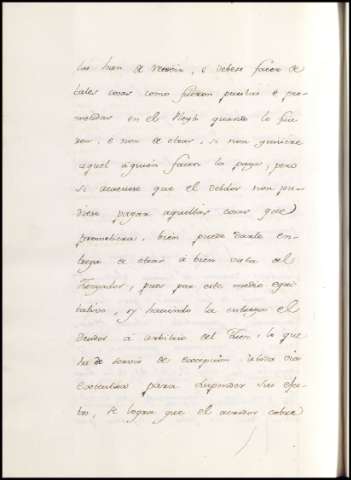 las han de recevir, o debese facer de
tales cosas como fueron puestas e pro-
metidas en el Pleyto quando lo ficie
ron, e non de otras, si non quisiere
aquel à quien facen la paga; pero
si acaeciese que el debdor non pu-
diese pagar aquellas cosas que
prometiera, bien puede darle en-
trega de otras à bien vista del
Juzgador, pues por este medio equi-
tativo, y haciendo la entrega el
Deudor à arbitrio del Juez, lo que
ha de servir de excepcion la via
executiva para suspender sus efec-
tos, se logra que el acreedor cobre